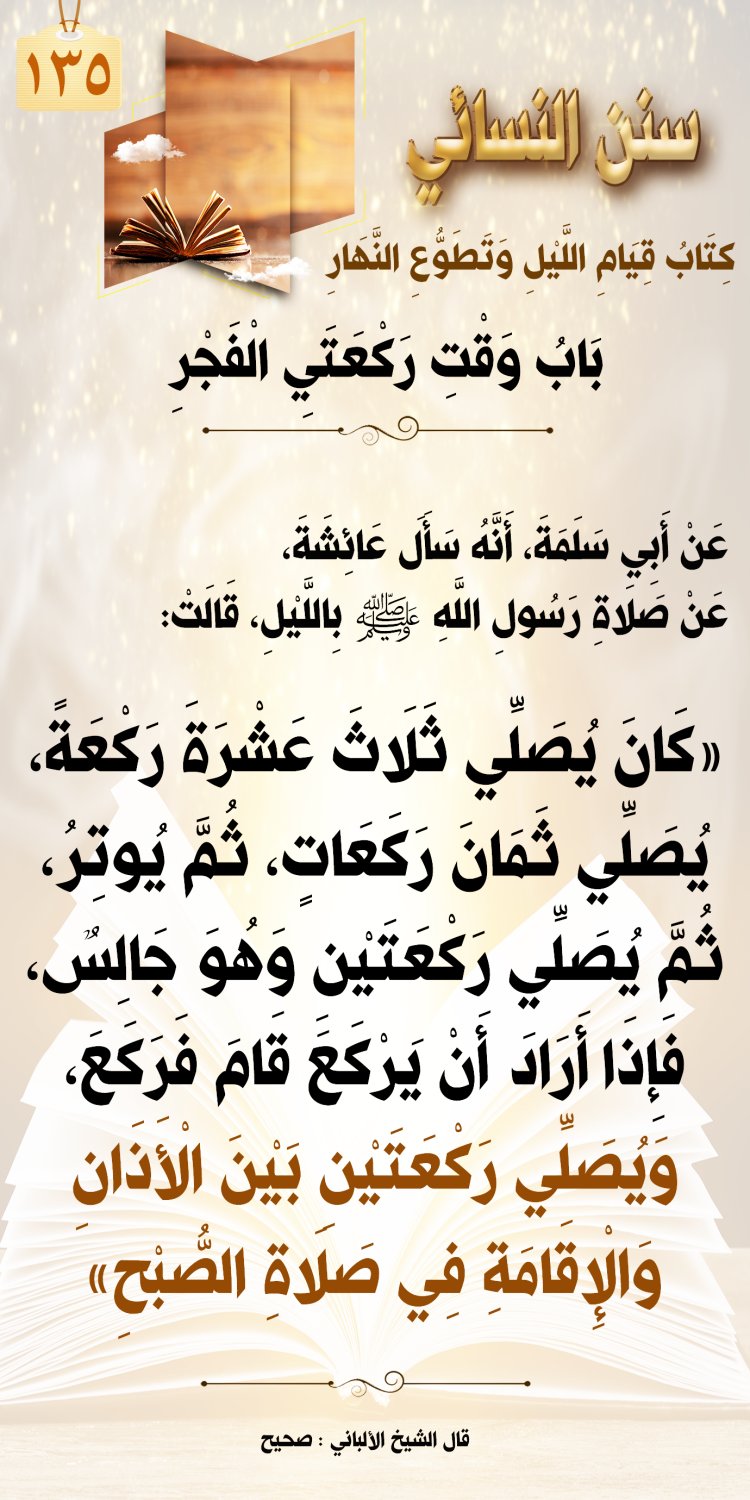 ١٣٥
سنن النسائي
كِتَابُ قِيَامِ اللَّيْلِ وَتَطَوُّعِ النَّهَارِ
بَابُ وَقْتِ رَكْعَتَيِ الْفَجْرِ
عَنْ أَبِي سَلَمَةَ، أَنَّهُ سَأَلَ عَائِشَةَ،
عَنْ صَلَاةِ رَسُولِ اللَّهِ ﷺ بِاللَّيْلِ، قَالَتْ:
«كَانَ يُصَلِّي ثَلَاثَ عَشْرَةَ رَكْعَةً،
يُصَلِّي ثَمَانَ رَكَعَاتٍ، ثُمَّ يُوتِرُ،
ثُمَّ يُصَلِّي رَكْعَتَيْنِ وَهُوَ جَالِسٌ،
فَإِذَا أَرَادَ أَنْ يَرْكَعَ قَامَ فَرَكَعَ،
وَيُصَلِّي رَكْعَتَيْنِ بَيْنَ الْأَذَانِ
وَالْإِقَامَةِ فِي صَلَاةِ الصُّبْحِ»
قال الشيخ الألباني : صحيح